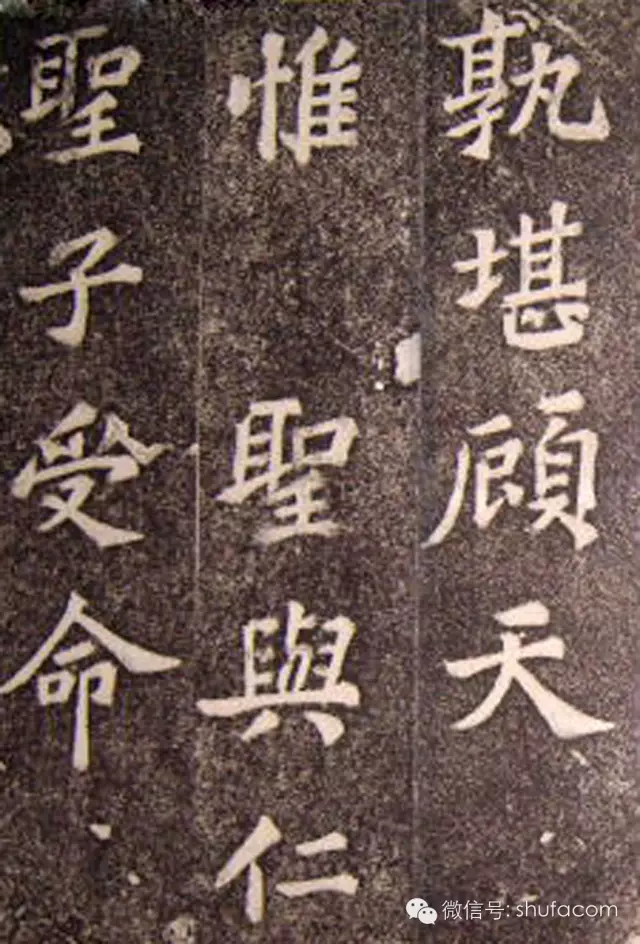 孰堪顧天
惟聖與仁
聖子受命
微信号: shufacom